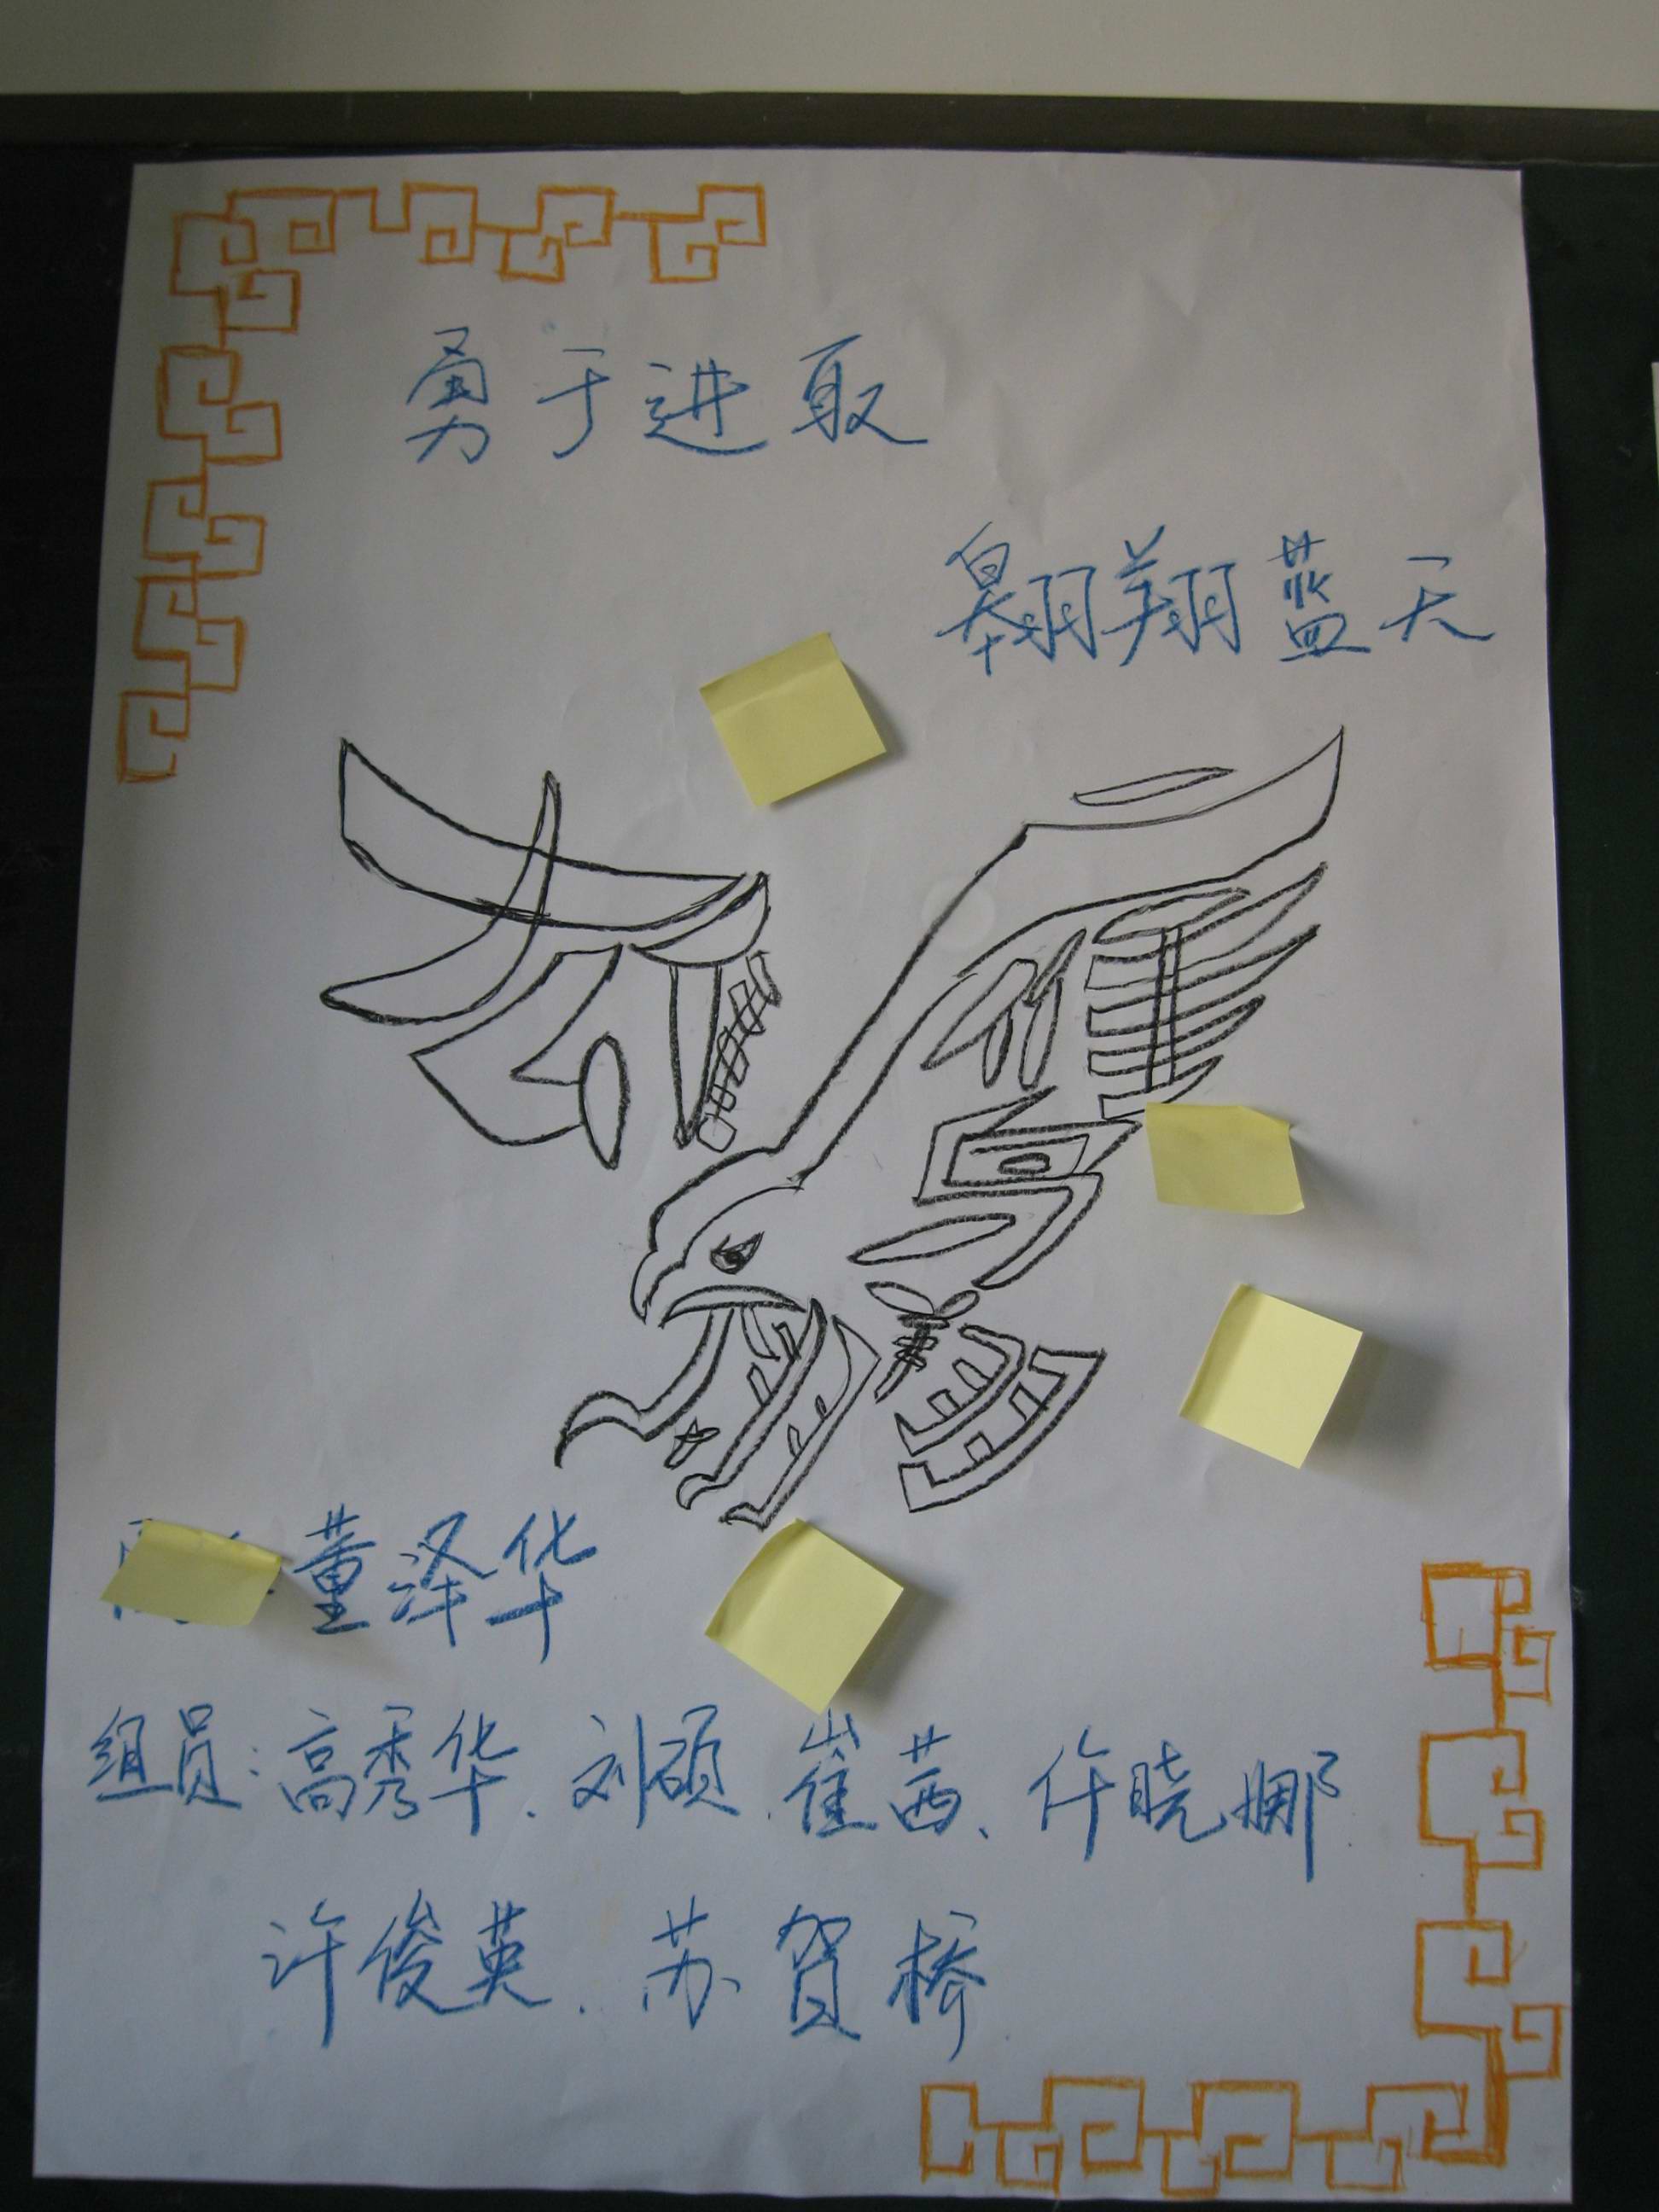 勇于进取
翱翔蓝天
董泽华
组员:高秀华、刘硕、崔茜、许晓娜
许俊英、苏贺桥